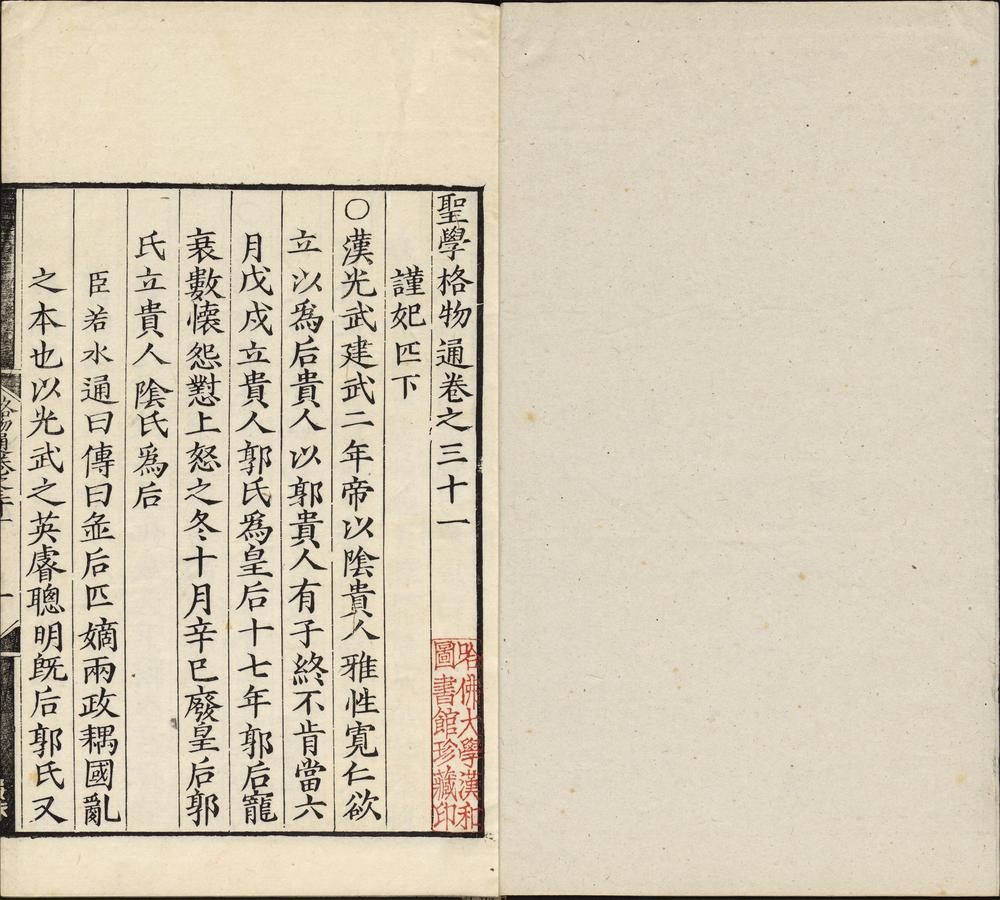 聖學格物通卷之三十一
謹妃匹下
○漢光武建武二年帝以陰貴人雅性寬仁欲
立以爲后貴人以郭貴人有子終不肯當六
月戊戌立貴人郭氏爲皇后十七年郭后寵
衰數懐怨懟上怒之冬十月辛巳廢皇后郭
氏立貴人陰氏爲后
臣若水通曰傳曰並后匹嫡兩政耦國亂
之本也以光武之英睿聰明旣后郭氏又
哈佛大學漢和
圖書館珍藏印